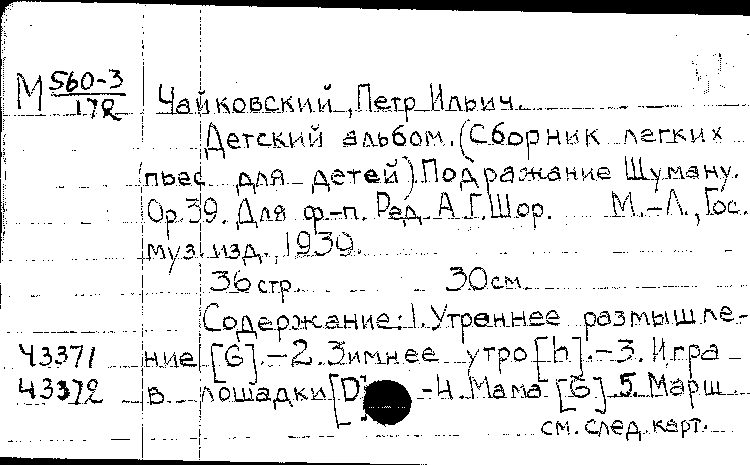 М 560-3/172
Чайковский, Петр Ильич.
Детский альбом. (Сборник легких
пьес для детей). Подражание Шуману.
Op. 39. Для ф-п. Ред. А.Г. Шор. М.-Л., Гос.
муз. изд., 1939.
36 стр. 30 см.
Содержание: 1. Утреннее размышле-
43371 ние [G]. - 2. Зимнее утро [h]. - 3. Игра
43372 в лошадки [D] - 4. Мама [G] 5. Марш
см. след. карт.